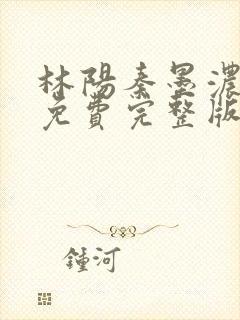 林陽秦墨濃
免費完整版
鍾河